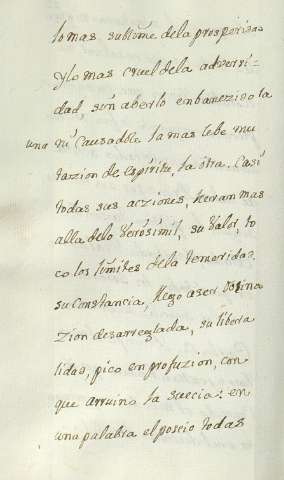 lo mas, sublime dela prosperidad
Ylo mas cruel dela adversi-
dad, sin aberlo embanezido la
una ni Causadole la mas lebe mu
tazion de espiritu, la otra. Casi
todas sus acziones, lleran mas
alla delo Verósimil, su Valor, to
co los limites dela temeridad.
su Constancia, llego aser obstina
zion desarreglada, su libera
lidad, pico en profuzion, con
que arruino la suecia: en
una palabra el poseio todas